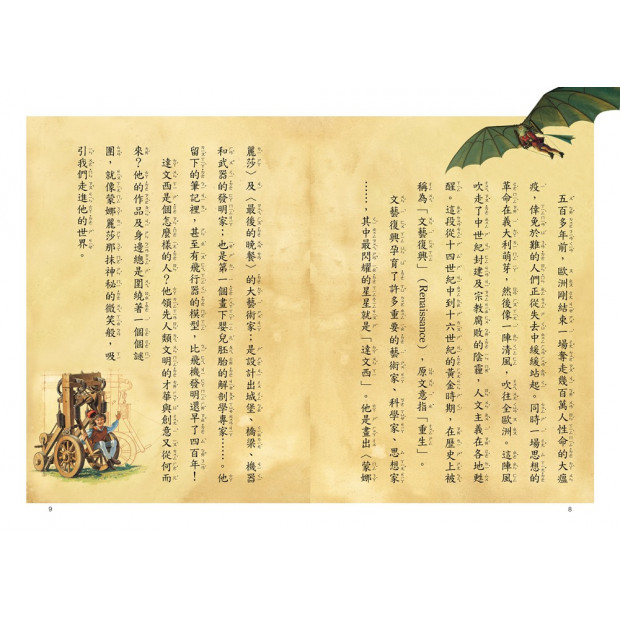 五百多年前，歐洲剛結束一場奪走幾百萬人性命的大瘟
疫，倖免於難的人們正從失去中緩緩站起。同時一場思想的
革命在義大利萌芽，然後像一陣清風，吹往全歐洲。這陣風
吹走了中世紀封建及宗教腐敗的陰霾，人文主義在各地甦
醒。這段從十四世紀中到十六世紀的黃金時期，在歷史上被
稱為「文藝復興」（Renaissance），原文意指「重生」。
文藝復興孕育了許多重要的藝術家、科學家、思想家
……其中最閃耀的星星就是「達文西」。他是畫出〈蒙娜
麗莎〉及〈最後的晚餐〉的大藝術家；是設計出城堡、橋梁、機器
和武器的發明家；也是第一個畫下嬰兒胚胎的解剖學專家……。他
留下的筆記裡，甚至有飛行器的模型，比飛機發明還早了四百年！
達文西是個怎麼樣的人？他領先人類文明的才華與創意又從何而
來？他的作品及身邊總是圍繞著一個個謎
團，就像蒙娜麗莎那抹神祕的微笑般，吸
引我們走進他的世界。
8
9